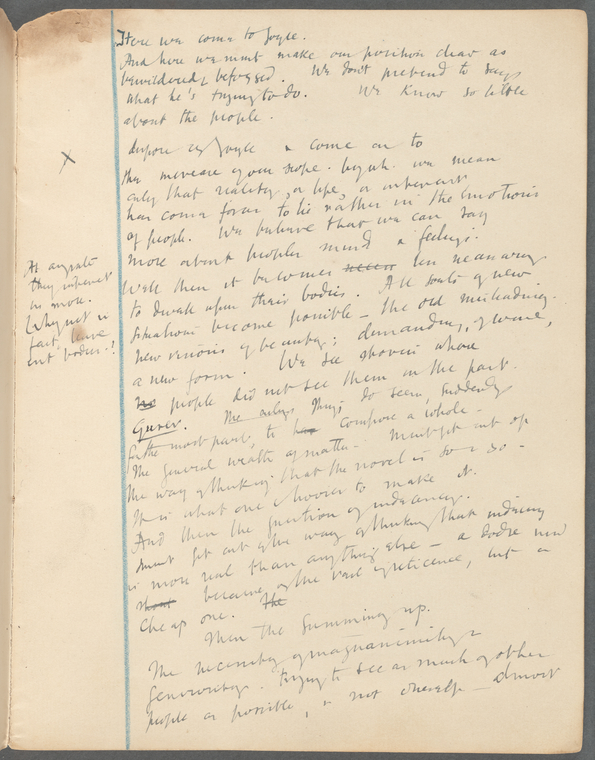 Here we come to Joyce.
And here we must make our position clear as
bewildered, befogged. We don't pretend to say
what he's trying to do. We know so little
about the people.
X
Joyce & come on to
the
only that reality, or life, or interest
has come for us to lie rather in the emotions
of people. We believe that we can say
more about people's mind & feelings.
Well then it becomes less necessary
to dwell upon their bodies. All sorts of new
situations become possible – the old misleading.
New versions of beauty; demanding, of course,
a new form. We see ghosts where
people did not see them in the past.
At any rate
they interest
us more.
Why not in
fact, leave
out bodies?
Things do seem, suddenly
for the most part, to compose a whole –
The general wealth of matter. Must get out of
the way of thinking that the novel is so & so –
It is what one chooses to make it.
And then the question of indecency.
Must get out of the way of thinking that indecency
is more real than anything else – a dodge now
because of the veil of reticence, but a
cheap one. The
Then the Summing up.
The necessity of magnanimity &
generosity. Trying to see as much of other
people as possible, & not oneself – almost